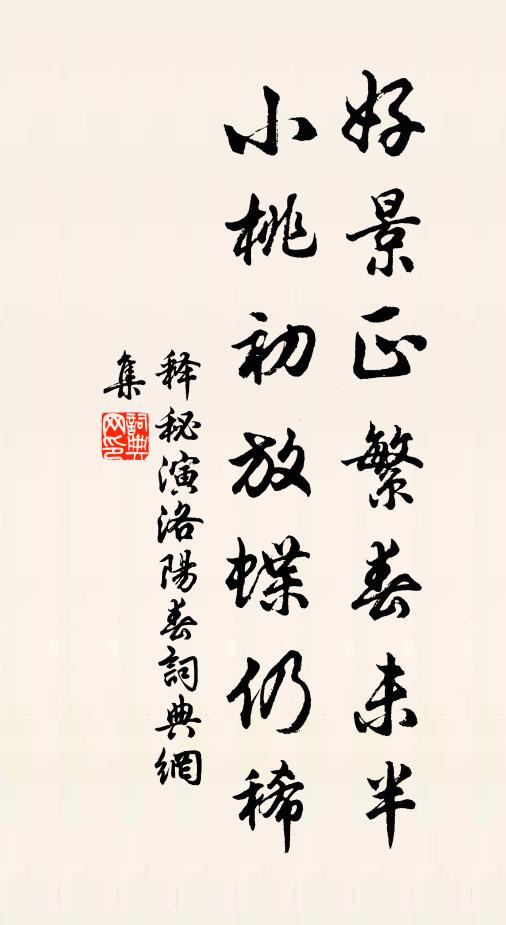 好景正繁春未半
小桃初放蝶仍稀
释秘演洛陽春詞典網
集
詞典网印